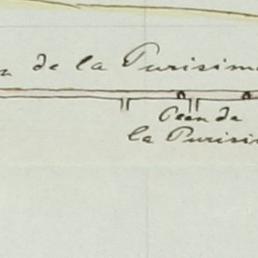 de la Purisim
Plan de
la Purisi